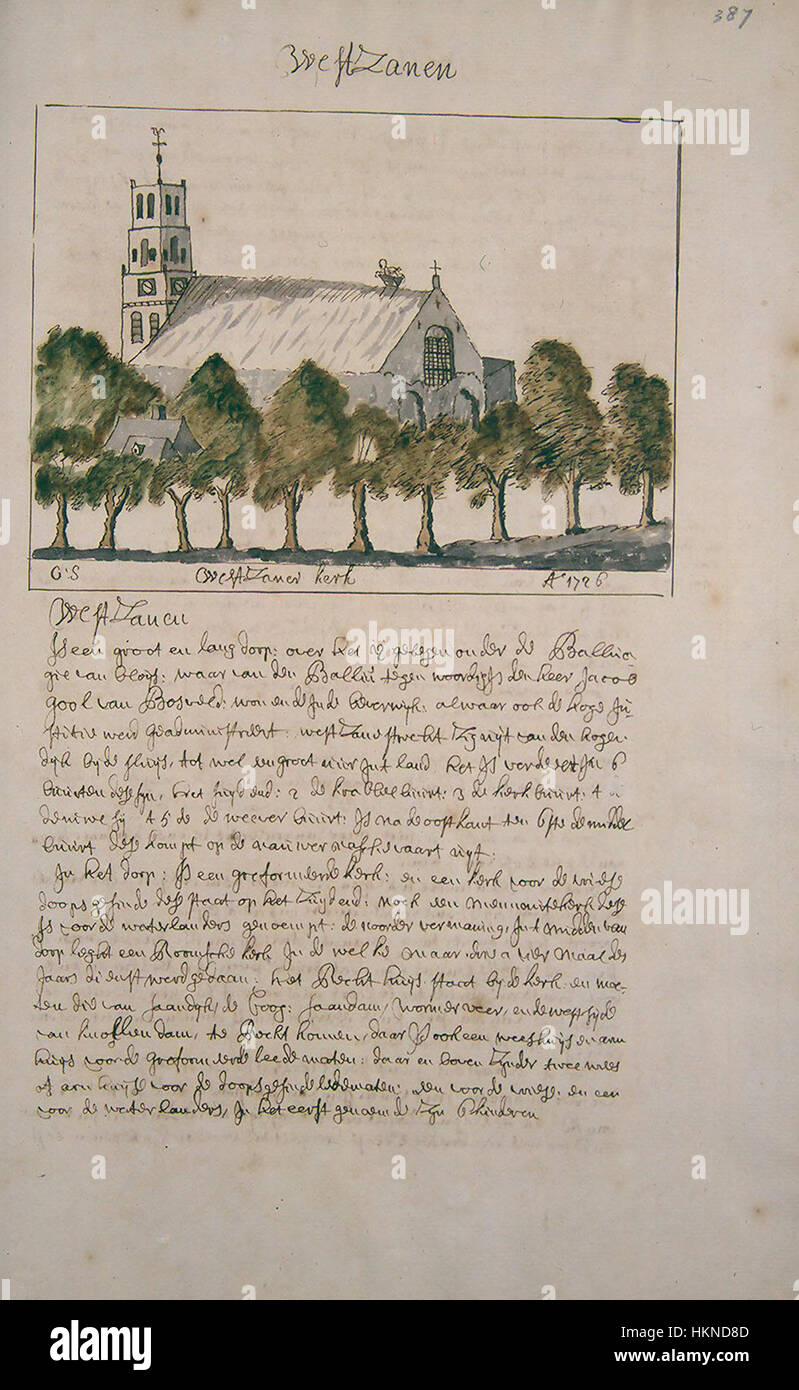 387
WestZanen
G:S WestZaner kerk Aº 1726
WestZanen
Is een groot en lang dorp: over het ij gelegen onder de Balliua
gie van blois: waar van den Balliu tegen woordig Is den heer Jacob
gool van Bosveld: wonende In de beverwijk: alwaar ook de hoge Ju-
stitie werd geadministreert: westZane strekt Zig uijt van den hogen
dijk bij de sluijs, tot wel een groot uier In't land het Is verdeelt In 6
buirten dese sijn, Eret Zuijdend: 2 de krabbelbuirt: 3 de kerkbuirt: 4
de niwe 5 de weever buirt: Is na de oostkant ten 6ste de middel
buirt dese kompt op de nauwer vaart uijt:
In het dorp: Is een gereformeerde kerk: en een kerk voor de vriese
doopsgesinde dese staat op het Zuijdend: noch een Mennonite kerk dese
Is voor de waterlanders genoempt: de noorder vermaning, In't midden van
dorp leght een Roomsche kerk In de welke maar drie a vier maal des
Jaars dienst werd gedaan: het Recht huijs staat bij de kerk en moe-
ten die van Saandijk, de Coog: Saandam, Wormerveer, en de westsijde
van knollendam, te Recht komen, daar Is ook een weeshuijs en arm
huijs voor de gereformeerde leedematen: daar en boven Zijnder twee wees
of arm huijse voor de doopsgesinde ledematen: een voor de vriese: en een
voor de waterlanders, In het eerst genoemde Zijn 6 kinderen
alamy
alamy stock photo
alamy
Image ID: HKND8D
www.alamy.com